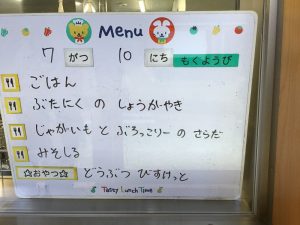 Menu
7 がつ 10 にち もくようび
ごはん
ぶたにく の しょうがやき
じゃがいも と ぶろっこりー の さらだ
みそしる
☆おやつ☆ どうぶつ びすけっと
Tasty Lunch Time